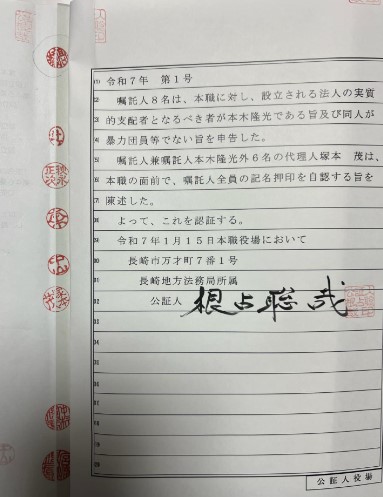 令和7年 第1号
嘱託人8名は、本職に対し、設立される法人の実質
的支配者となるべき者が本木隆光である旨及び同人が
暴力団員等でない旨を申告した。
嘱託人兼嘱託人本木隆光外6名の代理人塚本 茂は、
本職の面前で、嘱託人全員の記名押印を自認する旨を
陳述した。
よって、これを認証する。
令和7年1月15日本職役場において
長崎市万才町7番1号
長崎地方法務局所属
公証人 根占聡哉
公証人役場